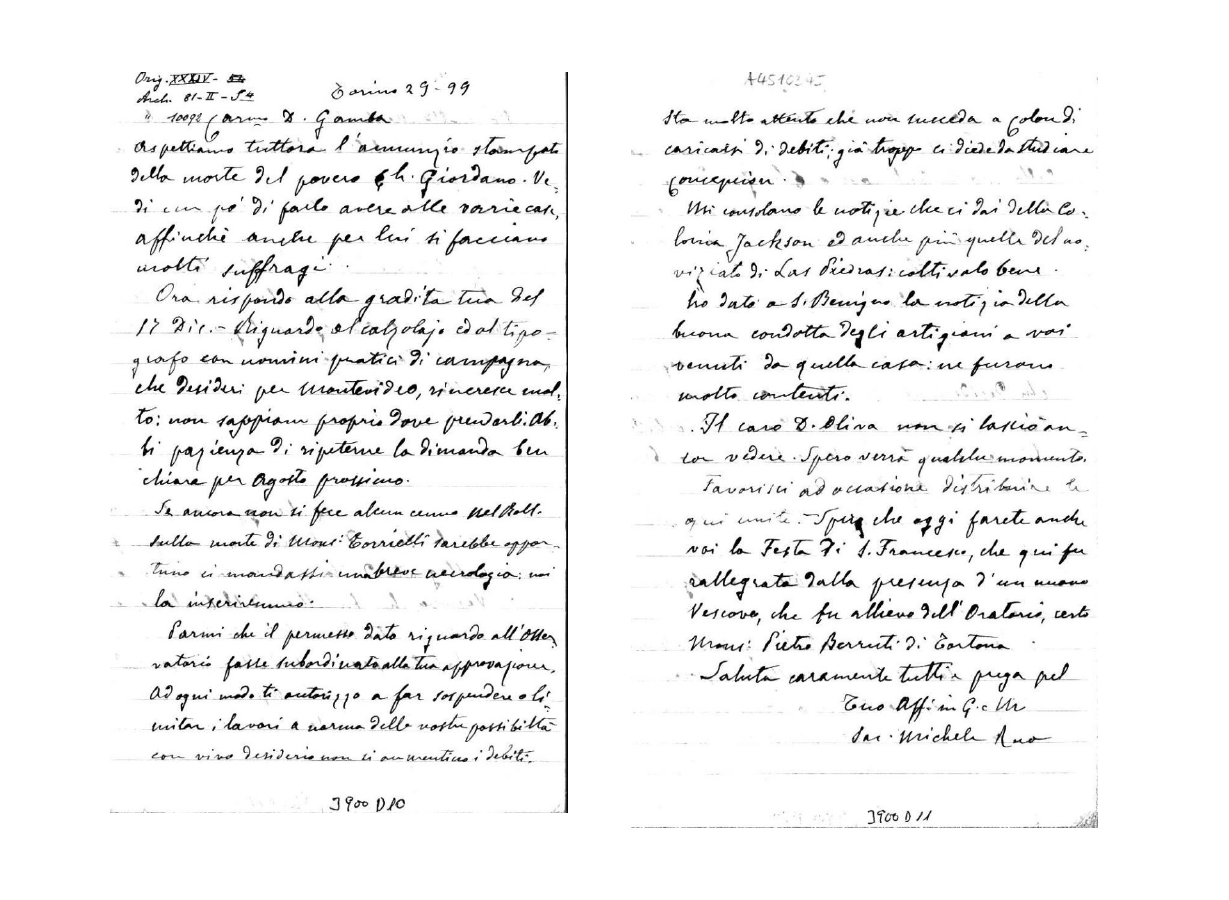 Orig. XXXIV -
Arch. 81-II-S4
Torino 29-99
" 10092 Carmo D. Gamba
Aspettiamo tuttora l'annunzio stampato
della morte del povero Ch. Giordano. Ve-
di un pó di farlo avere alle varie case,
affinchè anche per lui si facciano
molti suffragi.
Ora rispondo alla gradita tua del
17 Dic. - Riguardo al calzolajo ed al tipo-
grafo con nomini pratici di campagna,
che desideri per Montevideo, rincresce mol-
to: non sappiam proprio dove prenderli. Ab-
bi pazienza di ripeterne la dimanda ben
chiara per Agosto prossimo.
Se ancora non si fece alcun cenno nel Boll.
sulla morte di Mons: Torrielli sarebbe oppor-
tuno ci mandassi una breve necrologia: noi
la inseriremmo.
Parmi che il permesso dato riguardo all'Osser-
vatorio fosse subordinato alla tua approvazione,
Ad ogni modo ti autorizzo a far sospendere o li-
mitar i lavori a norma delle vostre possibiltà
con vivo desiderio non si aumentino i debiti.
J900 D10
A4510245
Sta molto attento che non succeda a Colon di
caricarsi di debiti; già troppo ci diede da studiare
Concepcion.
Mi consolano le notizie che ci dai della Co-
lonia Jackson ed anche più quelle del no-
viziato di Las Piedras: coltivalo bene.
ho dato a S. Benigno la notizia della
buona condotta degli artigiani a voi
venuti da quella casa: ne furono
molto contenti.
Il caro D. Oliva non si lasciò an-
cor vedere. Spero verrà qualche momento.
Favorisci ad occasione distribuire le
qui unite. - Spero che oggi farete anche
voi la Festa di S. Francesco, che qui fu
rallegrata dalla presenza d'un nuovo
Vescovo, che fu allievo dell'Oratorio, certo
Mons: Pietro Berruti di Tortona
Saluta caramente tutti e prega pel
Tuo Aff: in G. e M
Sac. Michele Rua
J900 D11